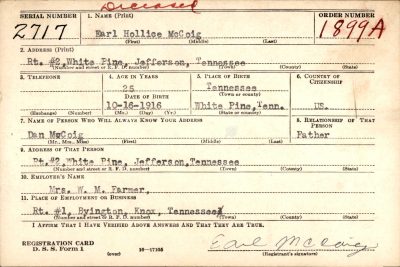 Deceased
SERIAL NUMBER 1. NAME (Print) ORDER NUMBER
2717 Earl Hollise McCoig 1899A
(First) (Middle) (Last)
2. ADDRESS (Print)
Rt. #2, White Pine, Jefferson, Tennessee
(Number and street or R. F. D. number) (Town) (County) (State)
3. TELEPHONE 4. AGE IN YEARS 5. PLACE OF BIRTH 6. COUNTRY OF CITIZENSHIP
25 Tennessee
DATE OF BIRTH (Town or county)
10-16-1916 White Pine, Tenn. US.
(Exchange) (Number) (Mo.) (Day) (Yr.) (State or country)
7. NAME OF PERSON WHO WILL ALWAYS KNOW YOUR ADDRESS 8. RELATIONSHIP OF THAT PERSON
Dan McCoig Father
(Mr., Mrs., Miss) (First) (Middle) (Last)
9. ADDRESS OF THAT PERSON
Rt. #2, White Pine, Jefferson, Tennessee
(Number and street or R. F. D. number) (Town) (County) (State)
10. EMPLOYER'S NAME
Mrs. W. M. Farmer,
11. PLACE OF EMPLOYMENT OR BUSINESS
Rt. #1, Byington, Knox, Tennessee
(Number and street or R. F. D. number) (Town) (County) (State)
I AFFIRM THAT I HAVE VERIFIED ABOVE ANSWERS AND THAT THEY ARE TRUE.
REGISTRATION CARD
D. S. S. Form 1 (over) 16-17105 Earl McCoig
(Registrant's signature)